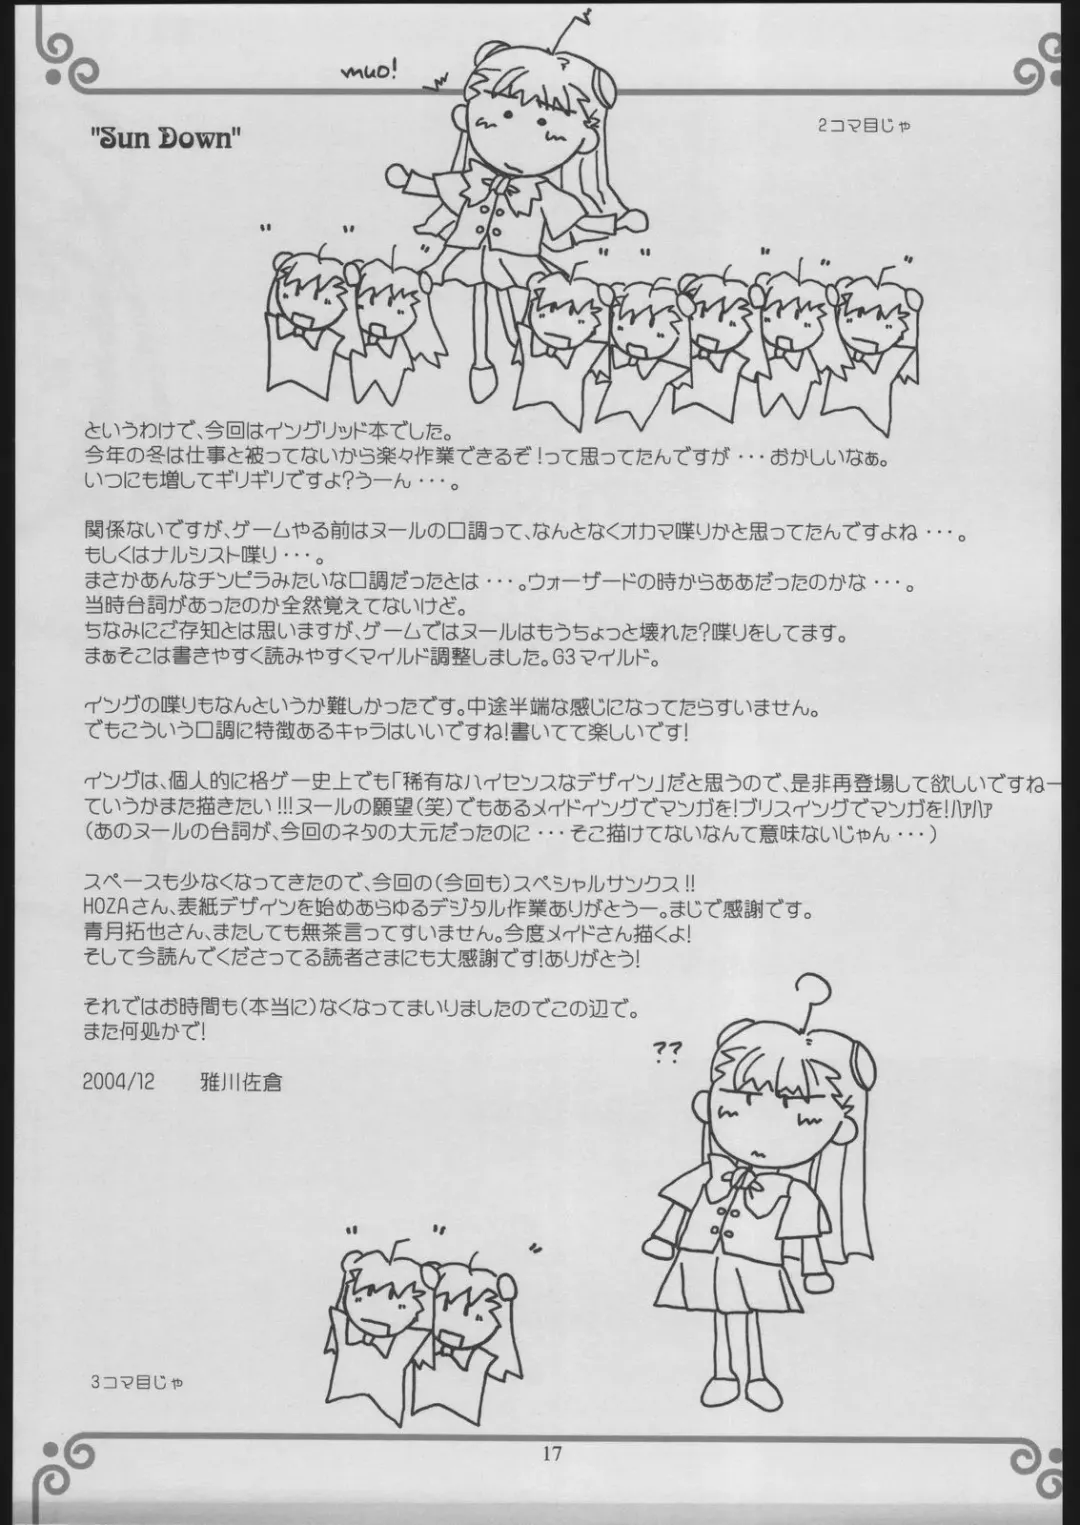 muo!
2コマ目じゃ
"Sun Down"
というわけで、今回はイングリッド本でした。
今年の冬は仕事と被ってないから楽々作業できるぞ!って思ってたんですが・・・おかしいなぁ。
いつにも増してギリギリですよ?うーん・・・。
関係ないですが、ゲームやる前はヌールの口調って、なんとなくオカマ喋りかと思ってたんですよね・・・。
もしくはナルシスト喋り・・・。
まさかあんなチンピラみたいな口調だったとは・・・。ウォーザードの時からああだったのかな・・・。
当時台詞があったのか全然覚えてないけど。
ちなみにご存知とは思いますが、ゲームではヌールはもうちょっと壊れた?喋りをしてます。
まぁそこは書きやすく読みやすくマイルド調整しました。G3マイルド。
イングの喋りもなんというか難しかったです。中途半端な感じになってたらすいません。
でもこういう口調に特徴あるキャラはいいですね!書いてて楽しいです!
イングは、個人的に格ゲー史上でも「稀有なハイセンスなデザイン」だと思うので、是非再登場して欲しいですねー
ていうかまた描きたい!!!ヌールの願望(笑)でもあるメイドイングでマンガを!ブリスイングでマンガを!ハァハァ
(あのヌールの台詞が、今回のネタの大元だったのに・・・そこ描けてないなんて意味ないじゃん・・・)
スペースも少なくなってきたので、今回の(今回も)スペシャルサンクス!!
HOZAさん、表紙デザインを始めあらゆるデジタル作業ありがとうー。まじで感謝です。
青月拓也さん、またしても無茶言ってすいません。今度メイドさん描くよ!
そして今読んでくださってる読者さまにも大感謝です!ありがとう!
それではお時間も(本当に)なくなってまいりましたのでこの辺で。
また何処かで!
2004/12 雅川佐倉
??
3コマ目じゃ
17